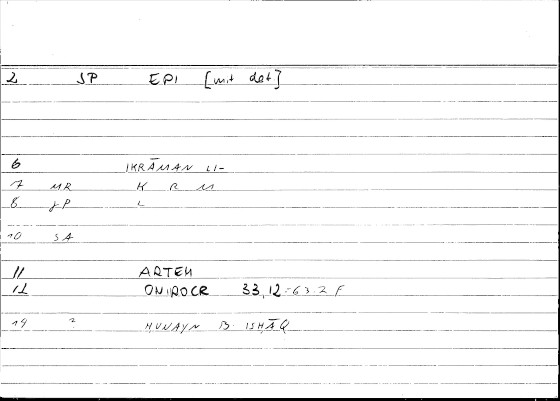 2 JP EPI [mit dat]
6 IKRĀMAN LI-
7 MR K R M
8 JP L
10 SA
11 ARTEM
12 ONIROCR 33,12-63.2 F
14 ? HUNAYN B. ISHĀQ